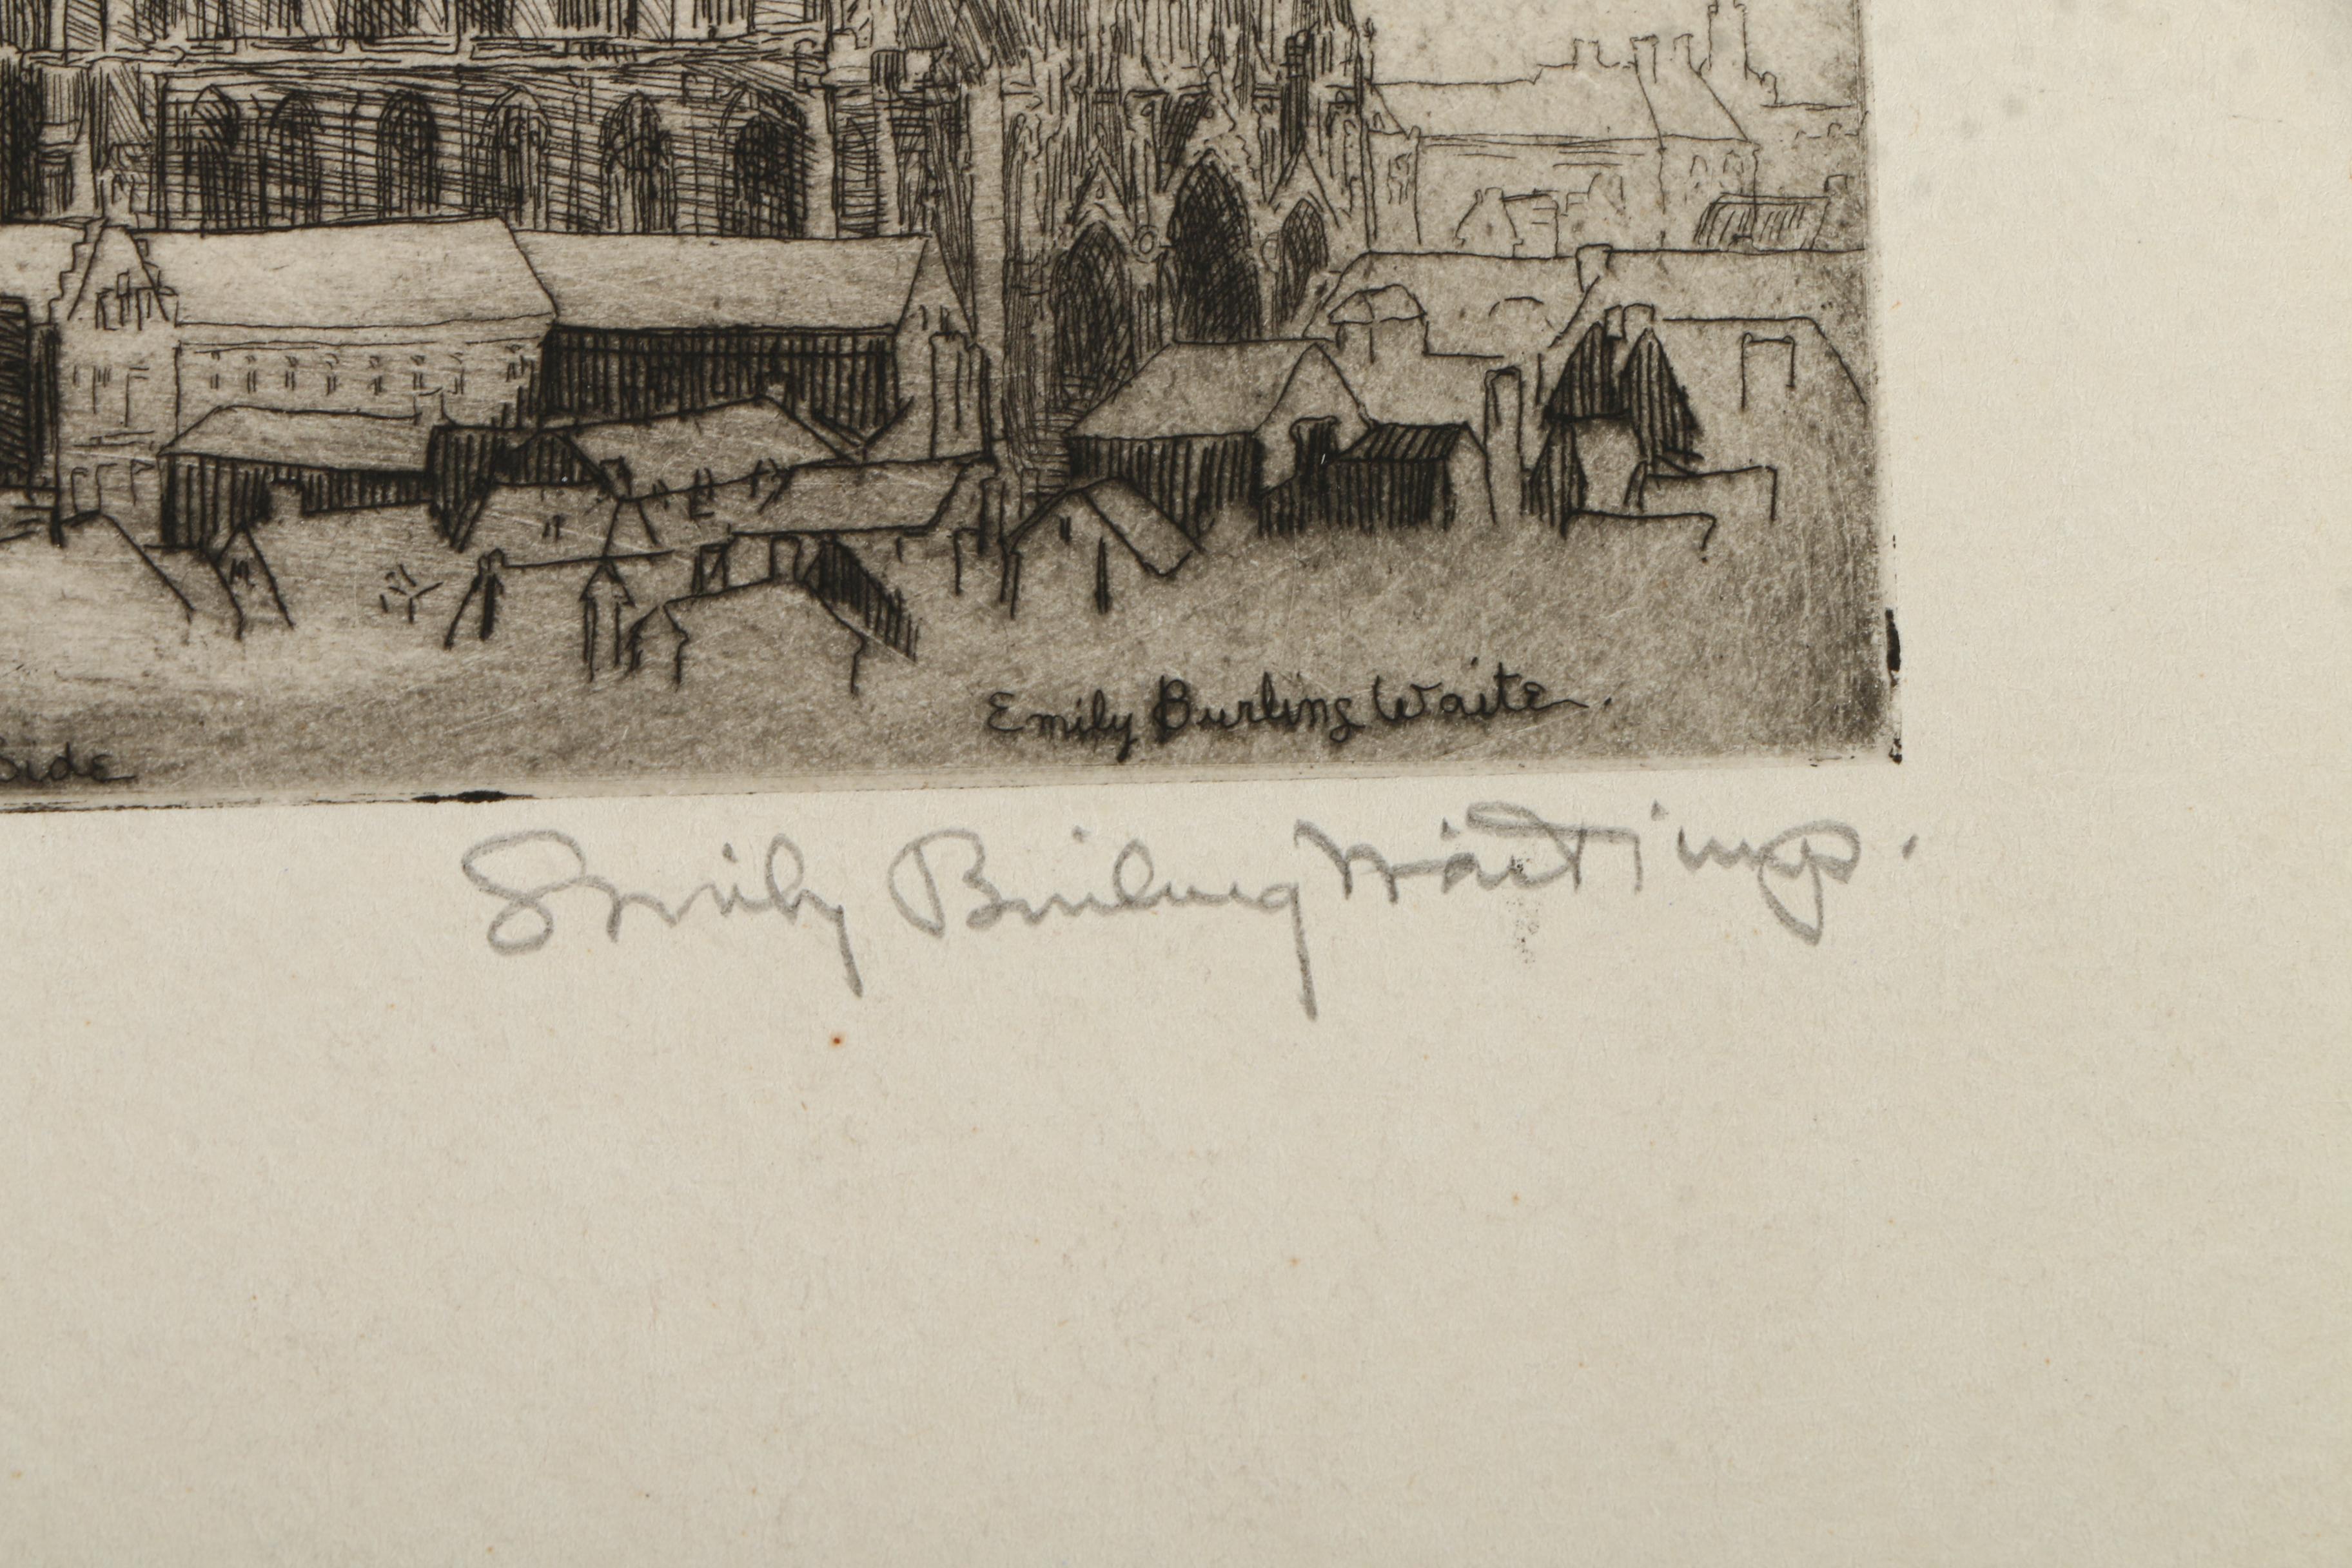 Emily Burling Waite.
Side
Emily Burling Waite imp.